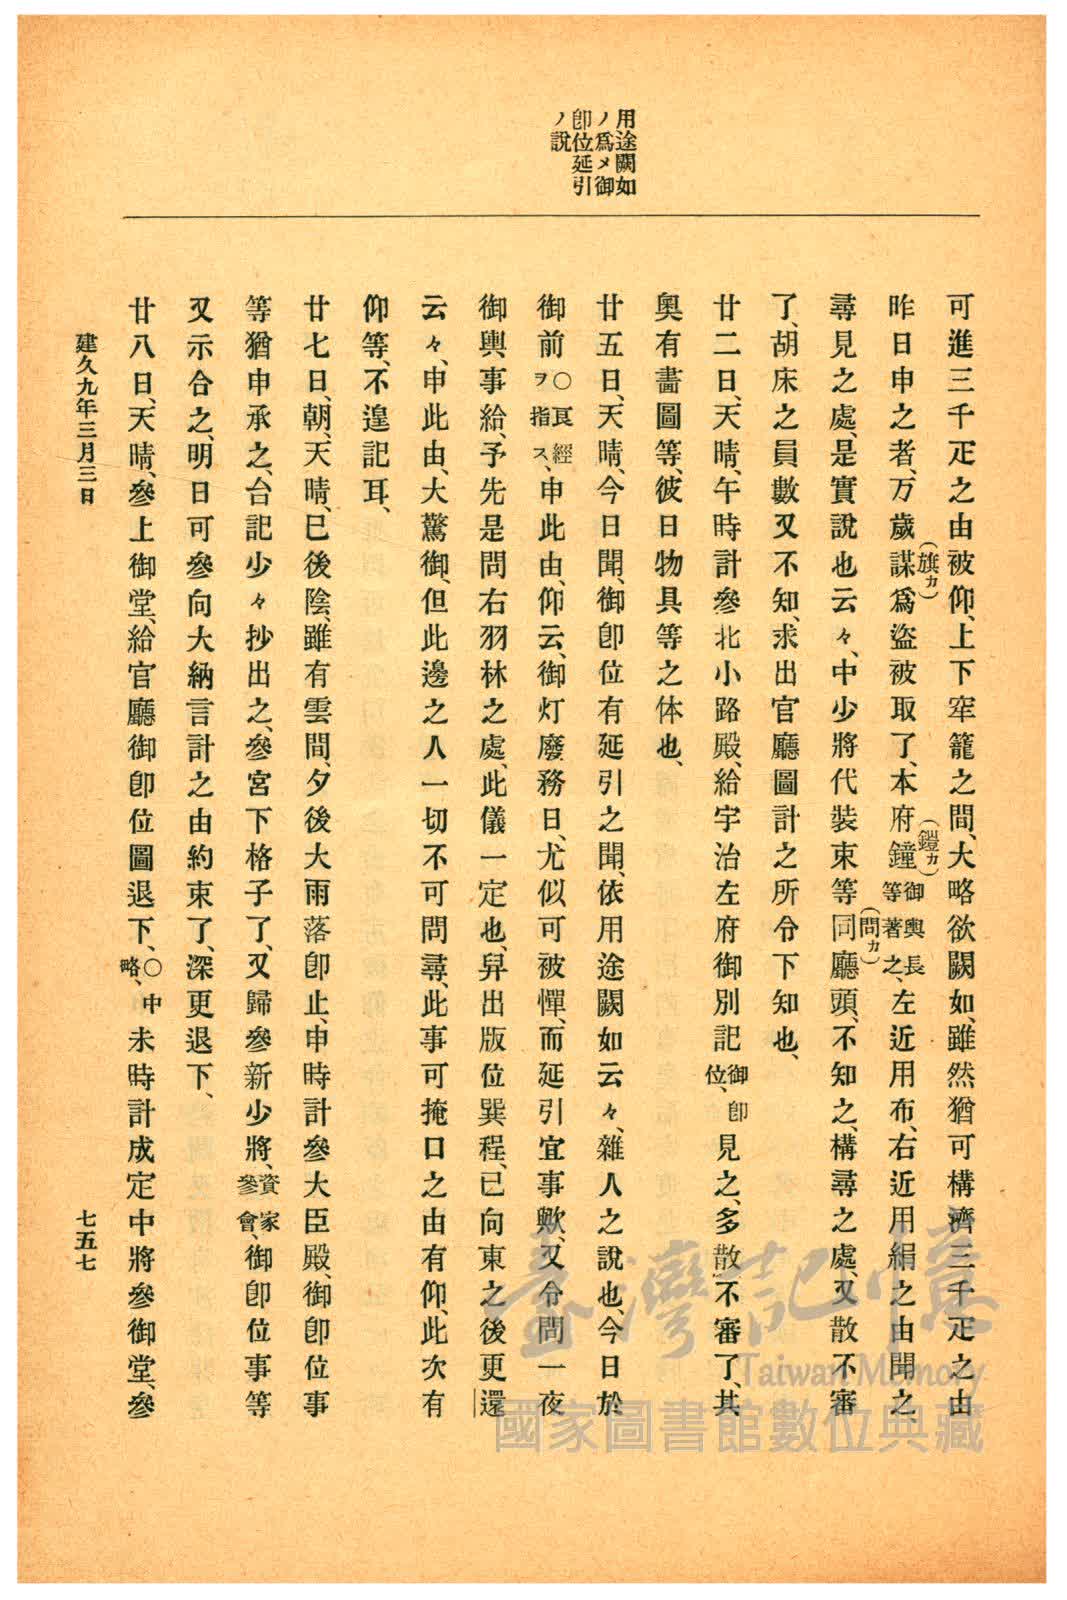 用途闕如
ノ爲メ御
卽位延引
ノ說
可進三千疋之由被仰、上下窂籠之間、大略欲闕如、雖然猶可構濟三千疋之由
昨日申之者、万歲謀(旗カ)爲盜被取了、本府鐘(鎧カ)御輿長等著之、左近用布、右近用絹之由聞之、
尋見之處、是實說也云々、中少將代裝束等同(問カ)廳頭、不知之、構尋之處、又散不審
了、胡床之員數又不知、求出官廳圖計之所令下知也、
廿二日、天晴、午時計參北小路殿、給宇治左府御別記御卽位、見之、多散不審了、其
奧有畵圖等、彼日物具等之体也、
廿五日、天晴、今日聞、御卽位有延引之聞、依用途闕如云々、雜人之說也、今日於
御前〇良經ヲ指ス、申此由、仰云、御灯廢務日、尤似可被憚、而延引宜事歟、又令問一夜
御輿事給、予先是問右羽林之處、此儀一定也、舁出版位巽程、已向東之後更還
云々、申此由、大驚御、但此邊之人一切不可問尋、此事可掩口之由有仰、此次有
仰等、不遑記耳、
廿七日、朝、天晴、巳後陰、雖有雲間、夕後大雨落卽止、申時計參大臣殿、御卽位事
等猶申承之、台記少々抄出之、參宮下格子了、又歸參新少將、資家參會、御卽位事等
又示合之、明日可參向大納言計之由約束了、深更退下、
廿八日、天晴、參上御堂、給官廳御卽位圖退下、〇中略、未時計成定中將參御堂、參
建久九年三月三日
七五七
臺灣記憶
Taiwan Memory
國家圖書館數位典藏